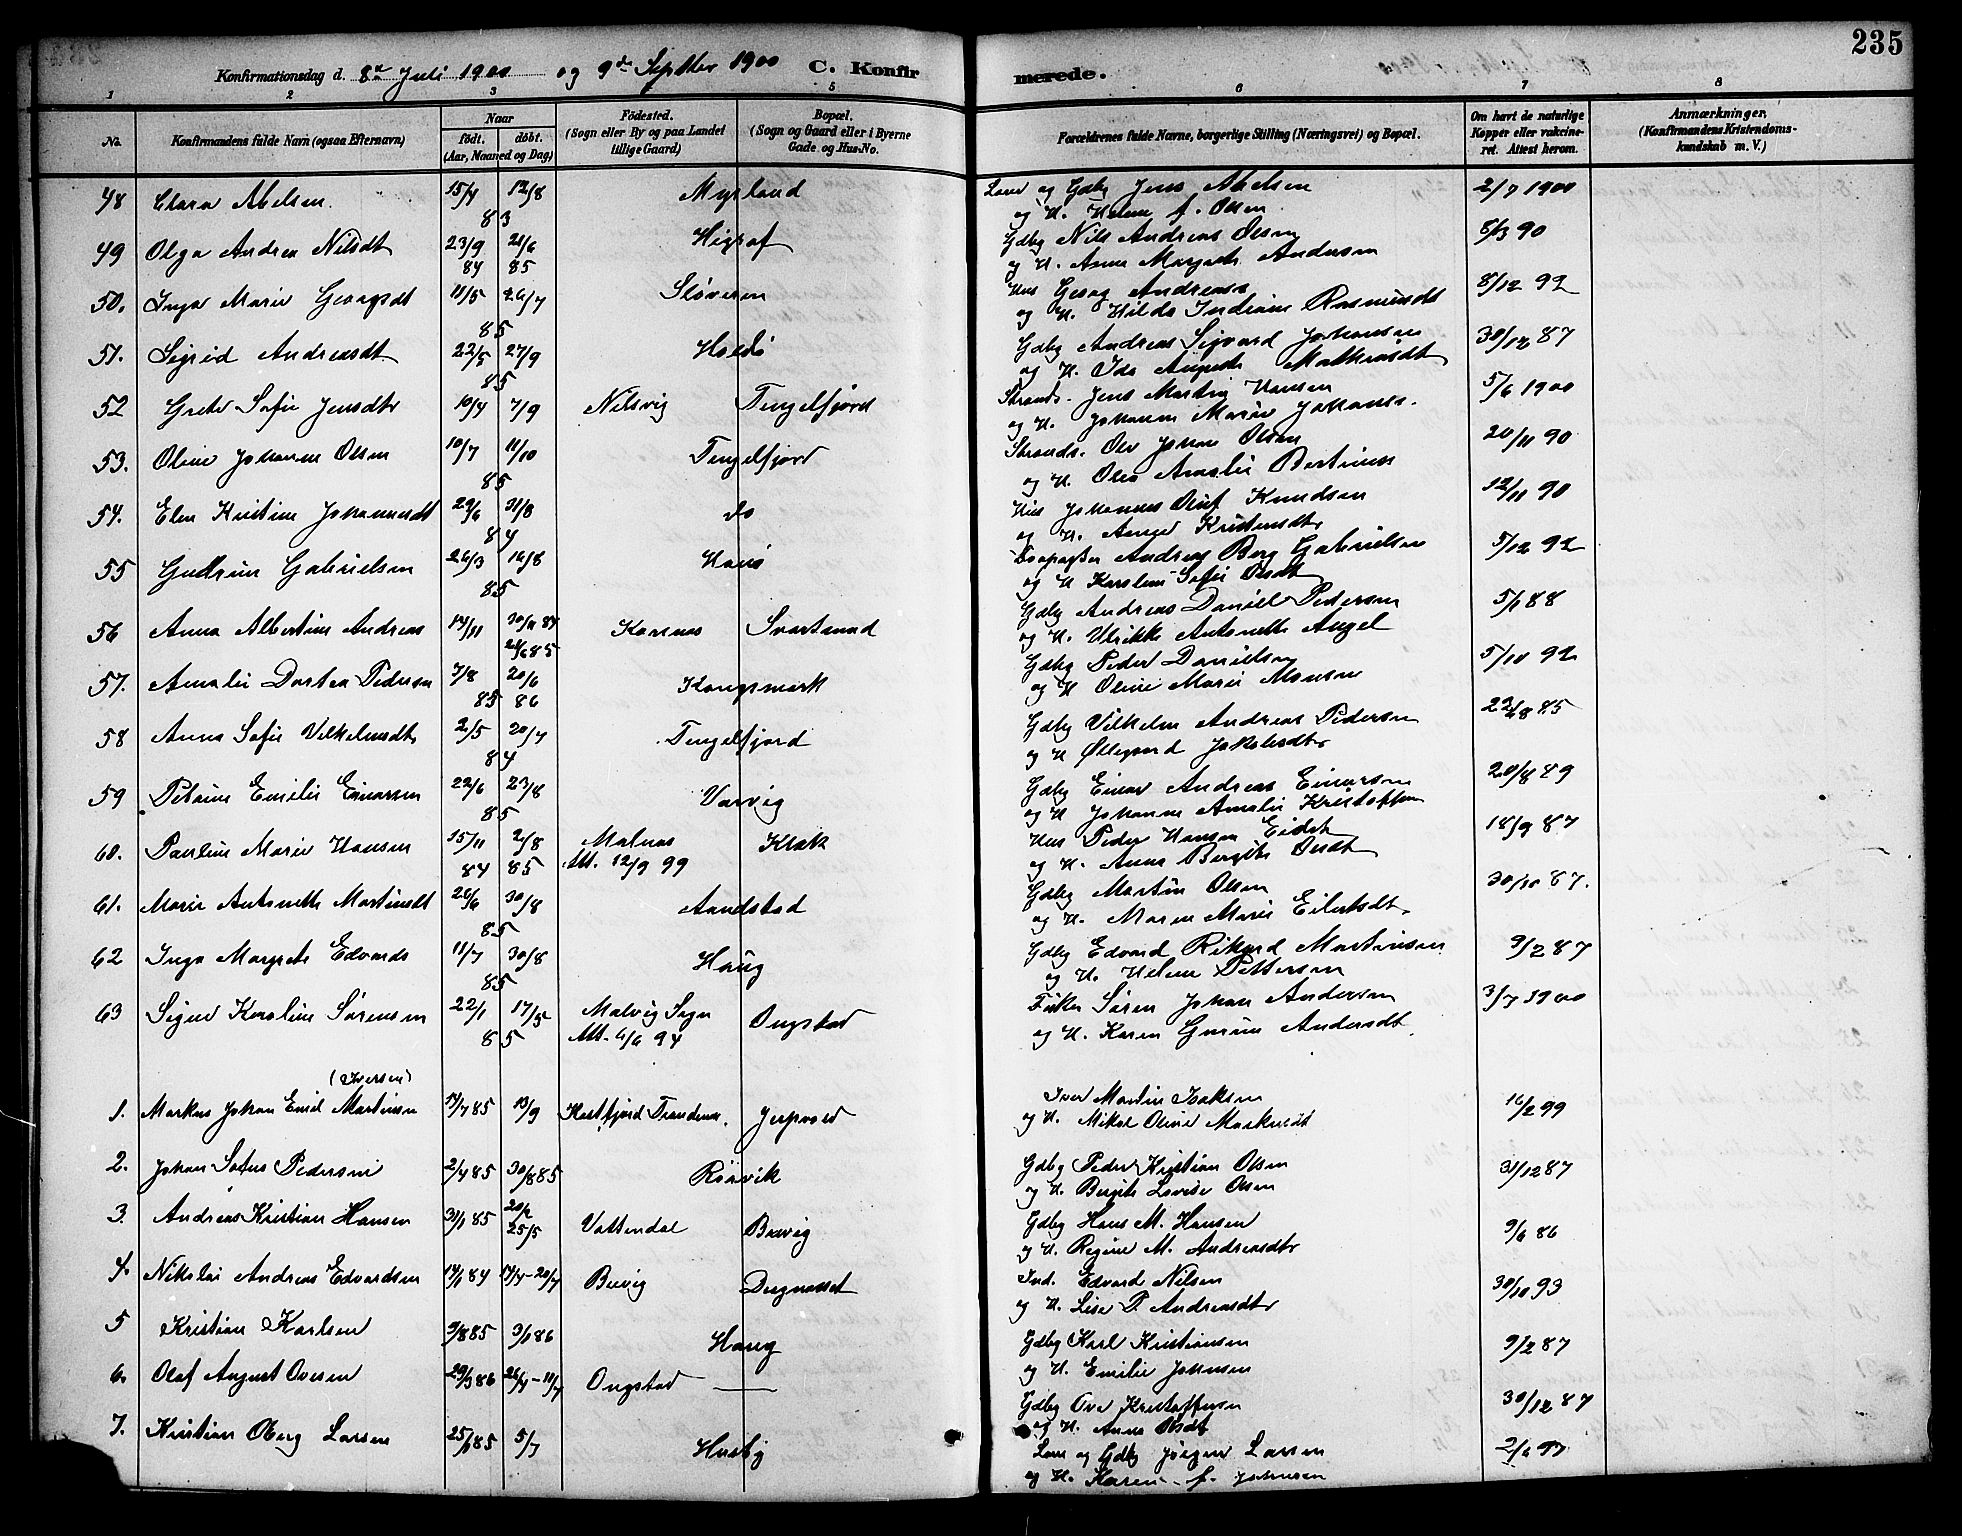 235
Konfirmationsdag d. 8de Juli 1900 og 9de Septbr 1900 C. Konfirmerede.
1 2 3 5 6 7 8
No. Konfirmandens fulde Navn (ogsaa Efternavn) Naar født. døbt. (Aar, Maaned og Dag) Födested. (Sogn eller By og paa Landet tillige Gaard) Bopæl. (Sogn og Gaard eller i Byerne Gade og Hus-No. Forældrenes fulde Navne, borgerlige Stilling (Næringsvei) og Bopæl. Om havt de naturlige Kopper eller vakcineret. Attest herom. Anmærkninger. (Konfirmandens Kristendomskundskab m. V.)
48 Clara Abelsen 15/4 12/8 83 Myrland Gdbg Jens Abelsen 2/7 1900
og H. Helene f. Olsen
49 Olga Andrea Nilsdt 23/9 84 21/6 85 Higraf Gdbg Nils Andreas Olsen 5/3 90
og H. Anne Margrete Andersen
50. Inga Marie Georgsdt 11/5 26/7 85 Sløveren Hus Georg Andreas 8/12 92
og H. Hilda Indiane Rasmusdt
51. Sigrid Andreasdt 22/5 27/9 85 Holdö Gdbg Andreas Sigvard Johansen 30/12 87
og H. Ida Auguste Mathiasdt
52 Grete Sofie Jensdtr 10/4 7/9 Nilsvig Tengelfjord Strands. Jens Martin Hansen 5/6 1900
og H. Johanna Marie Johans.
53. Oline Johanne Olsen 10/7 11/10 85 Tengelfjord Strands. Ole Johan Olsen 20/11 90
og H. Olea Amalie Bertinus
54. Elen Kristine Johannesdt 29/6 31/8 84 do Hus Johannes Oluf Knudsen 12/11 90
og H. Kristensdtr
55 Gudrun Gabrielsen 26/3 16/8 85 Hanö Andreas Berg Gabrielsen 5/12 92
og H Karoline Sofie Olsdt
56 Anna Albertine Andreas 14/11 30/11 84 21/6 85 Kornes Svartsund Gdbg Andreas Daniel Pedersen 5/1 88
og H. Ulrikke Antonette Angel
57. Amalie Dortea Pedersen 7/8 85 20/6 86 Kongsmark Gdbg Peder Danielsen 5/10 92
og H Oline Marie Monsen
58 Anna Sofie Vilhelmsdtr 2/5 20/7 84 Tengelfjord Gdbg Vilhelm Andreas Pedersen 22/8 85
og H Øllegaard Jakobsdtr
59 Petrine Emilie Einarsen 22/6 23/8 85 Varvig Gdbg Einar Andreas Einarsen 20/8 89
og H Johanne Amalie Kristoffersen
60. Pauline Marie Hansen 15/11 84 2/8 85 Malnes Att. 12/9 99 Kråk Hus Peder Hansen Eidet 18/9 87
og H. Anna Bergitte Olsdt
61. Marie Antonette Martinsdt 26/6 30/8 85 Aandstad Gdbg Martin Olsen 30/10 87.
og H. Maren Marie Eilertsdt.
62 Inga Margrete Edvards 11/7 30/8 85 Haug Gdbg Edvard Rikard Martinsen 9/2 87
og H. Helene Pettersen
63 Signe Karoline Sørensen 22/1 17/5 85 Malvig Sogn Att. 6/6 94 Ongstad Fisker Søren Johan Andersen 3/7 1900
og H. Karen Gurine Andersdt.
(Iversen)
1. Markus Johan Emil Martinsen 14/7 85 13/9 Kastfjord Trondenes. Jerpvold Iver Martin Isaksen 16/2 99
og H. Mikal Oline Markusdt
2. Johan Sofus Pedersen 2/4 85 30/8 85 Rörvik Gdbg Peder Kristian Olsen 31/12 87
og H. Bergitte Lovise Olsen
3. Andreas Kristian Hansen 31/1 85 20/2 25/5 Vattendal Buvig Gdbg Hans M. Hansen 9/6 86
og H. Regine M. Andreasdtr
4. Nikolai Andreas Edvardsen 14/1 84 14/4-20/7 Buvig Ind. Edvard Nilsen 30/10 93
og H. Lise P. Andreasdtr
5 Kristian Karlsen 9/8 85 3/1 86 Haug Gdbg Karl Kristiansen 9/2 87
og H. Emilie Johnsen
6. Olaf August Ovesen 29/3 86 26/4-11/7 Ongstad — Gdbg Ove Kristoffersen 30/12 87
og H. Anna Olsdt
7. Kristian Oberg Larsen 25/1 85 5/7 Husby Gdbg Jörgen Larsen 2/6 97
og H. Karen f. Johnsen